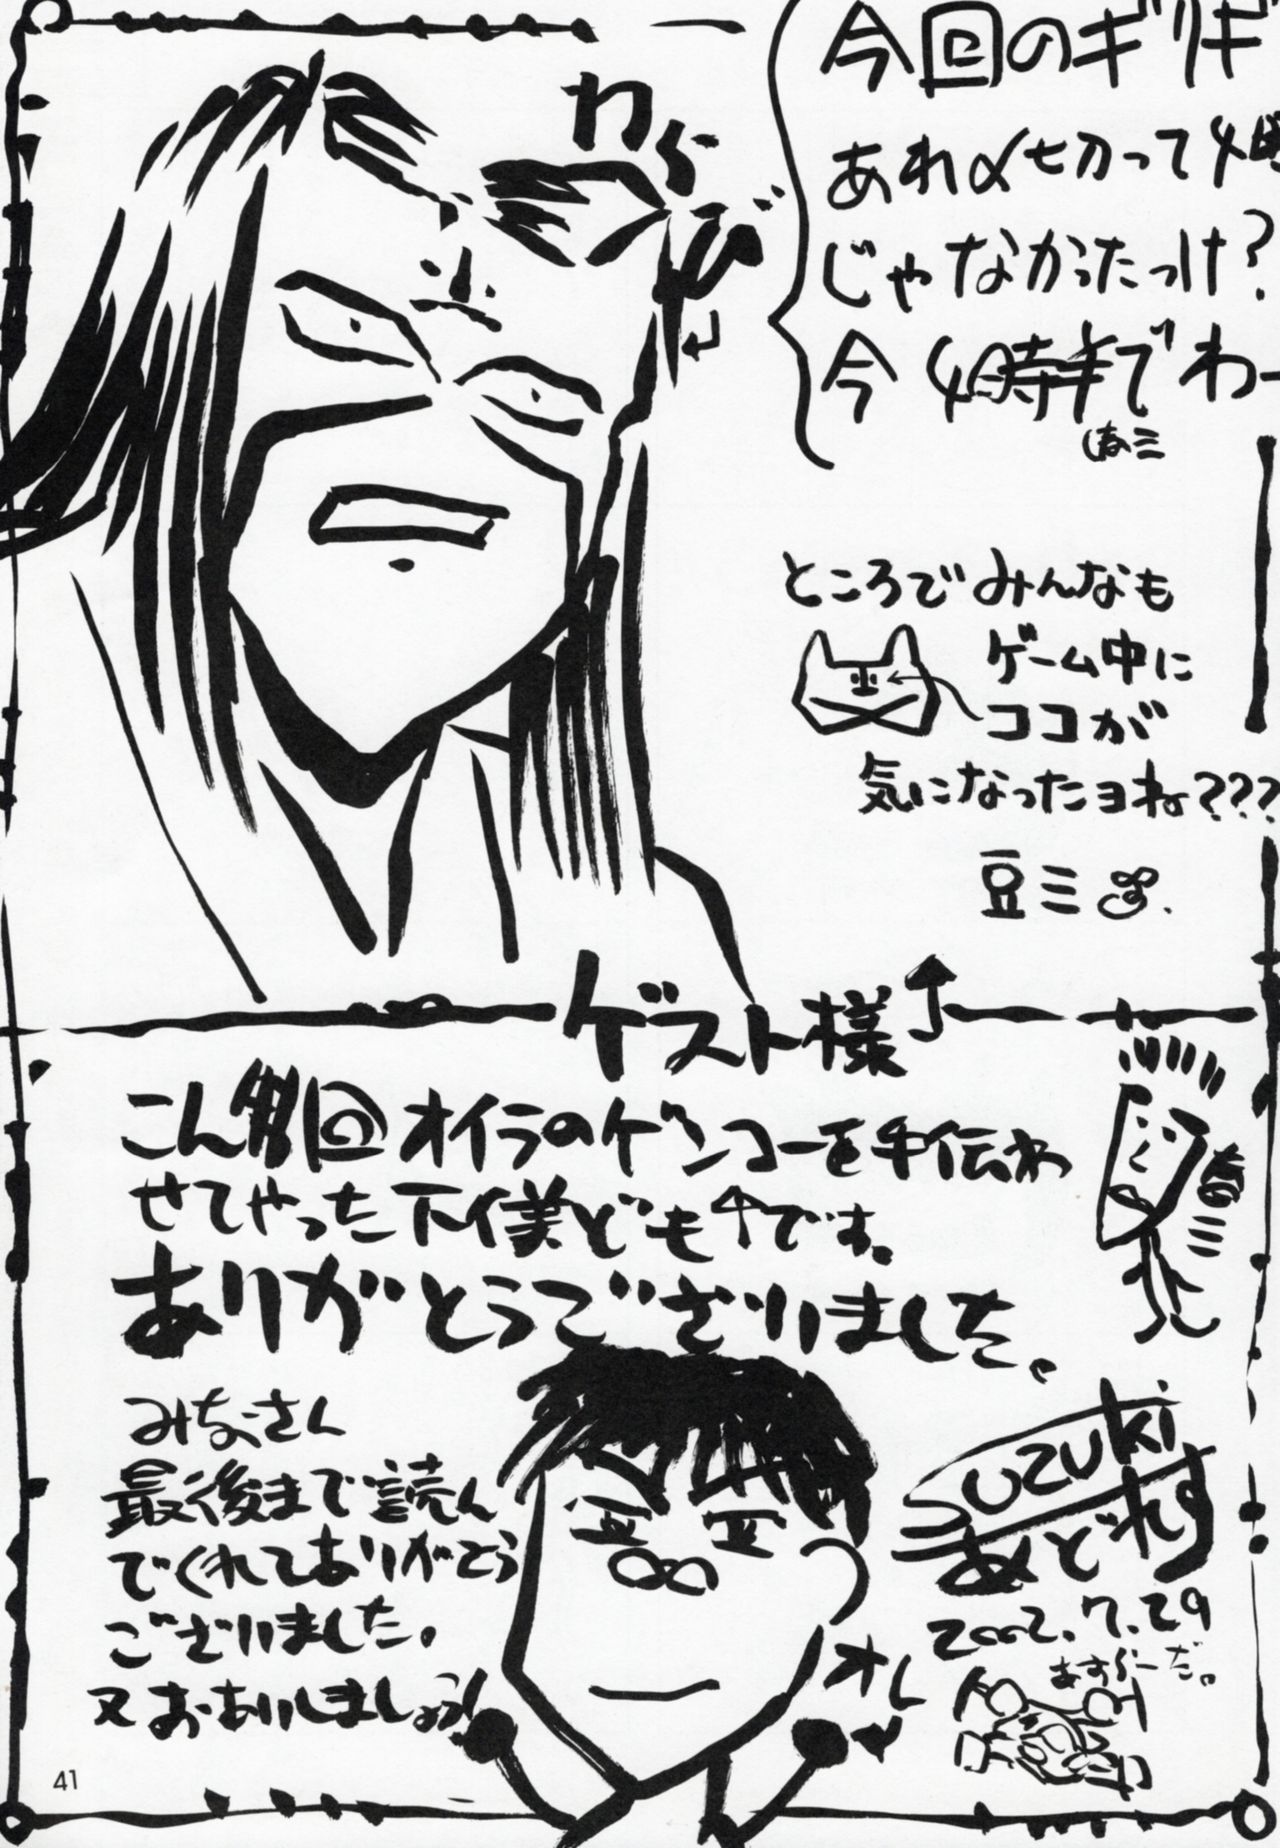 わらび
今回のギリギ
あれ〆切って4時
じゃなかったっけ？
今 4時半でわー
ところでみんなも
ゲーム中に
ココが
気になったヨね???
豆ミ
ゲスト様↑
こん回オイラのゲンコーを手伝わ
せてやった下僕ども↑です。
ありがとうございました。
みなさん
最後まで読ん
でくれてありがとう
ございました。
又おあいしましょう!
オレ
SUZUKI
あどれす
2002.7.29
41